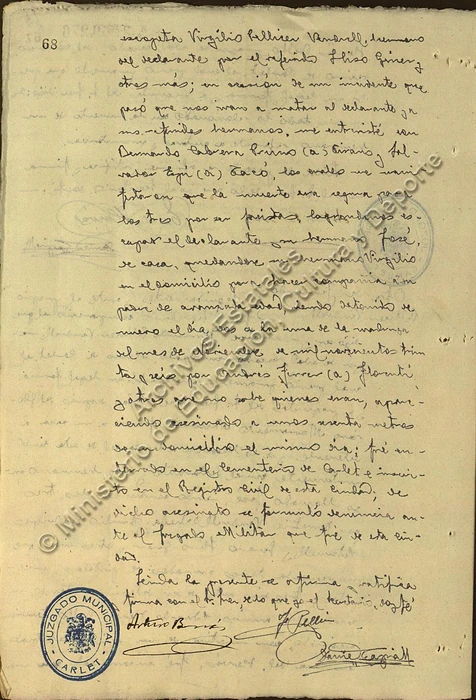 68
escopeta Virgilio Pellicer Vendrell, hermano
del declarante por el referido Eliso Giner y
otros más; en ocasión de un incidente que
pasó que nos ivan a matar al declarante y a
sus referidos hermanos, me entrevisté con
Bernardo Cabrera Primo (a)
(a) los cuales me mani-
festaron que la muerte era segura para
los tres por ser fascistas, lograndonos es-
capar el declarante y su hermano José,
de casa, quedandose mi hermano Virgilio
en el domicilio para hacer compañia a mi
padre de avanzada edad, siendo detenido de
nuevo el dia dos a la una de la madruga-
del mes de de mil novecientos trein-
ta y seis por Andrés Ferrer (a)
y otros que no sabe quienes eran, apare-
ciendo asesinado a unos metros
domicilio el mismo dia; fué en-
terrado en el Cementerio de Carlet e inscri-
to en el Registro Civil de esta Ciudad; de
dicho asesinato se formuló denuncia an-
te el Juzgado Militar que fué de esta ciu-
dad.
Leida la presente se afirma, ratifica
firma con el Sr. Juez, de lo que yo el Secretario, doy fé
JUZGADO MUNICIPAL
CARLET
© Ministerio de Educación, Cultura y Deporte
Archivos Estatales